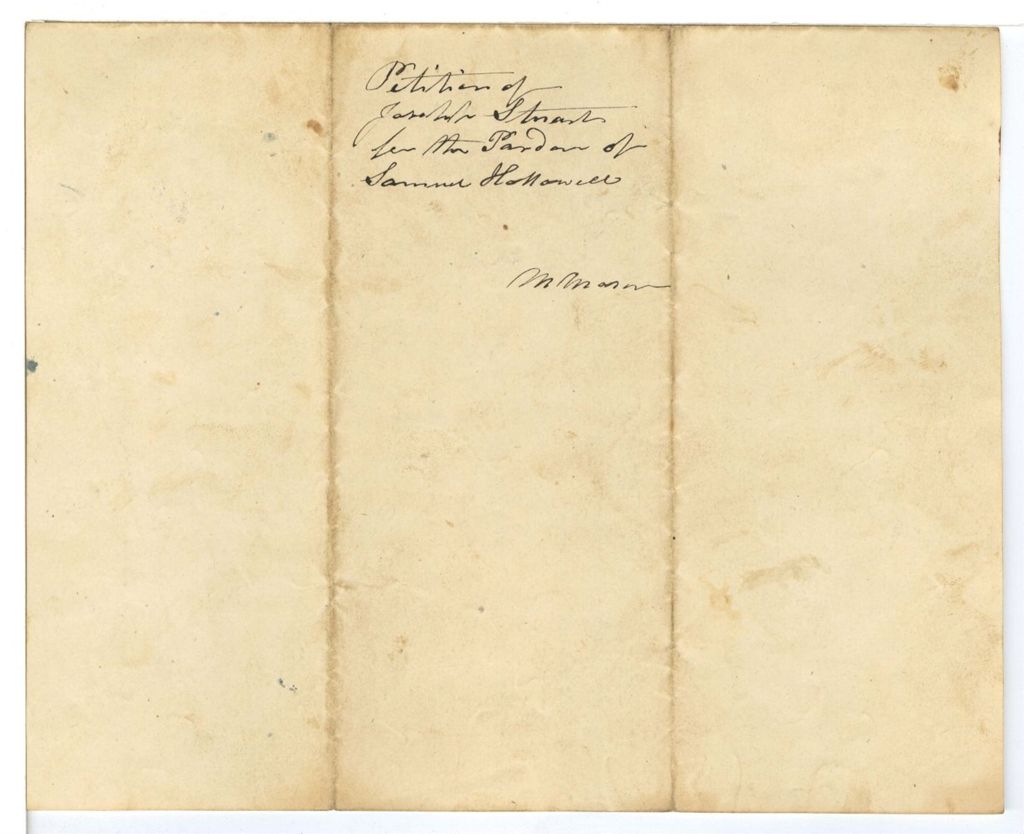 Petition of
Joseph Stuart
for the Pardon of
Samuel Hollowell
M Mason